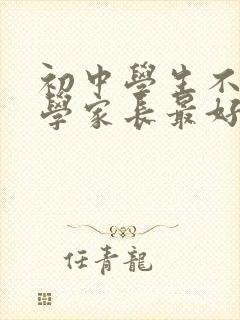 初中學生不
學家長最好
任青龍